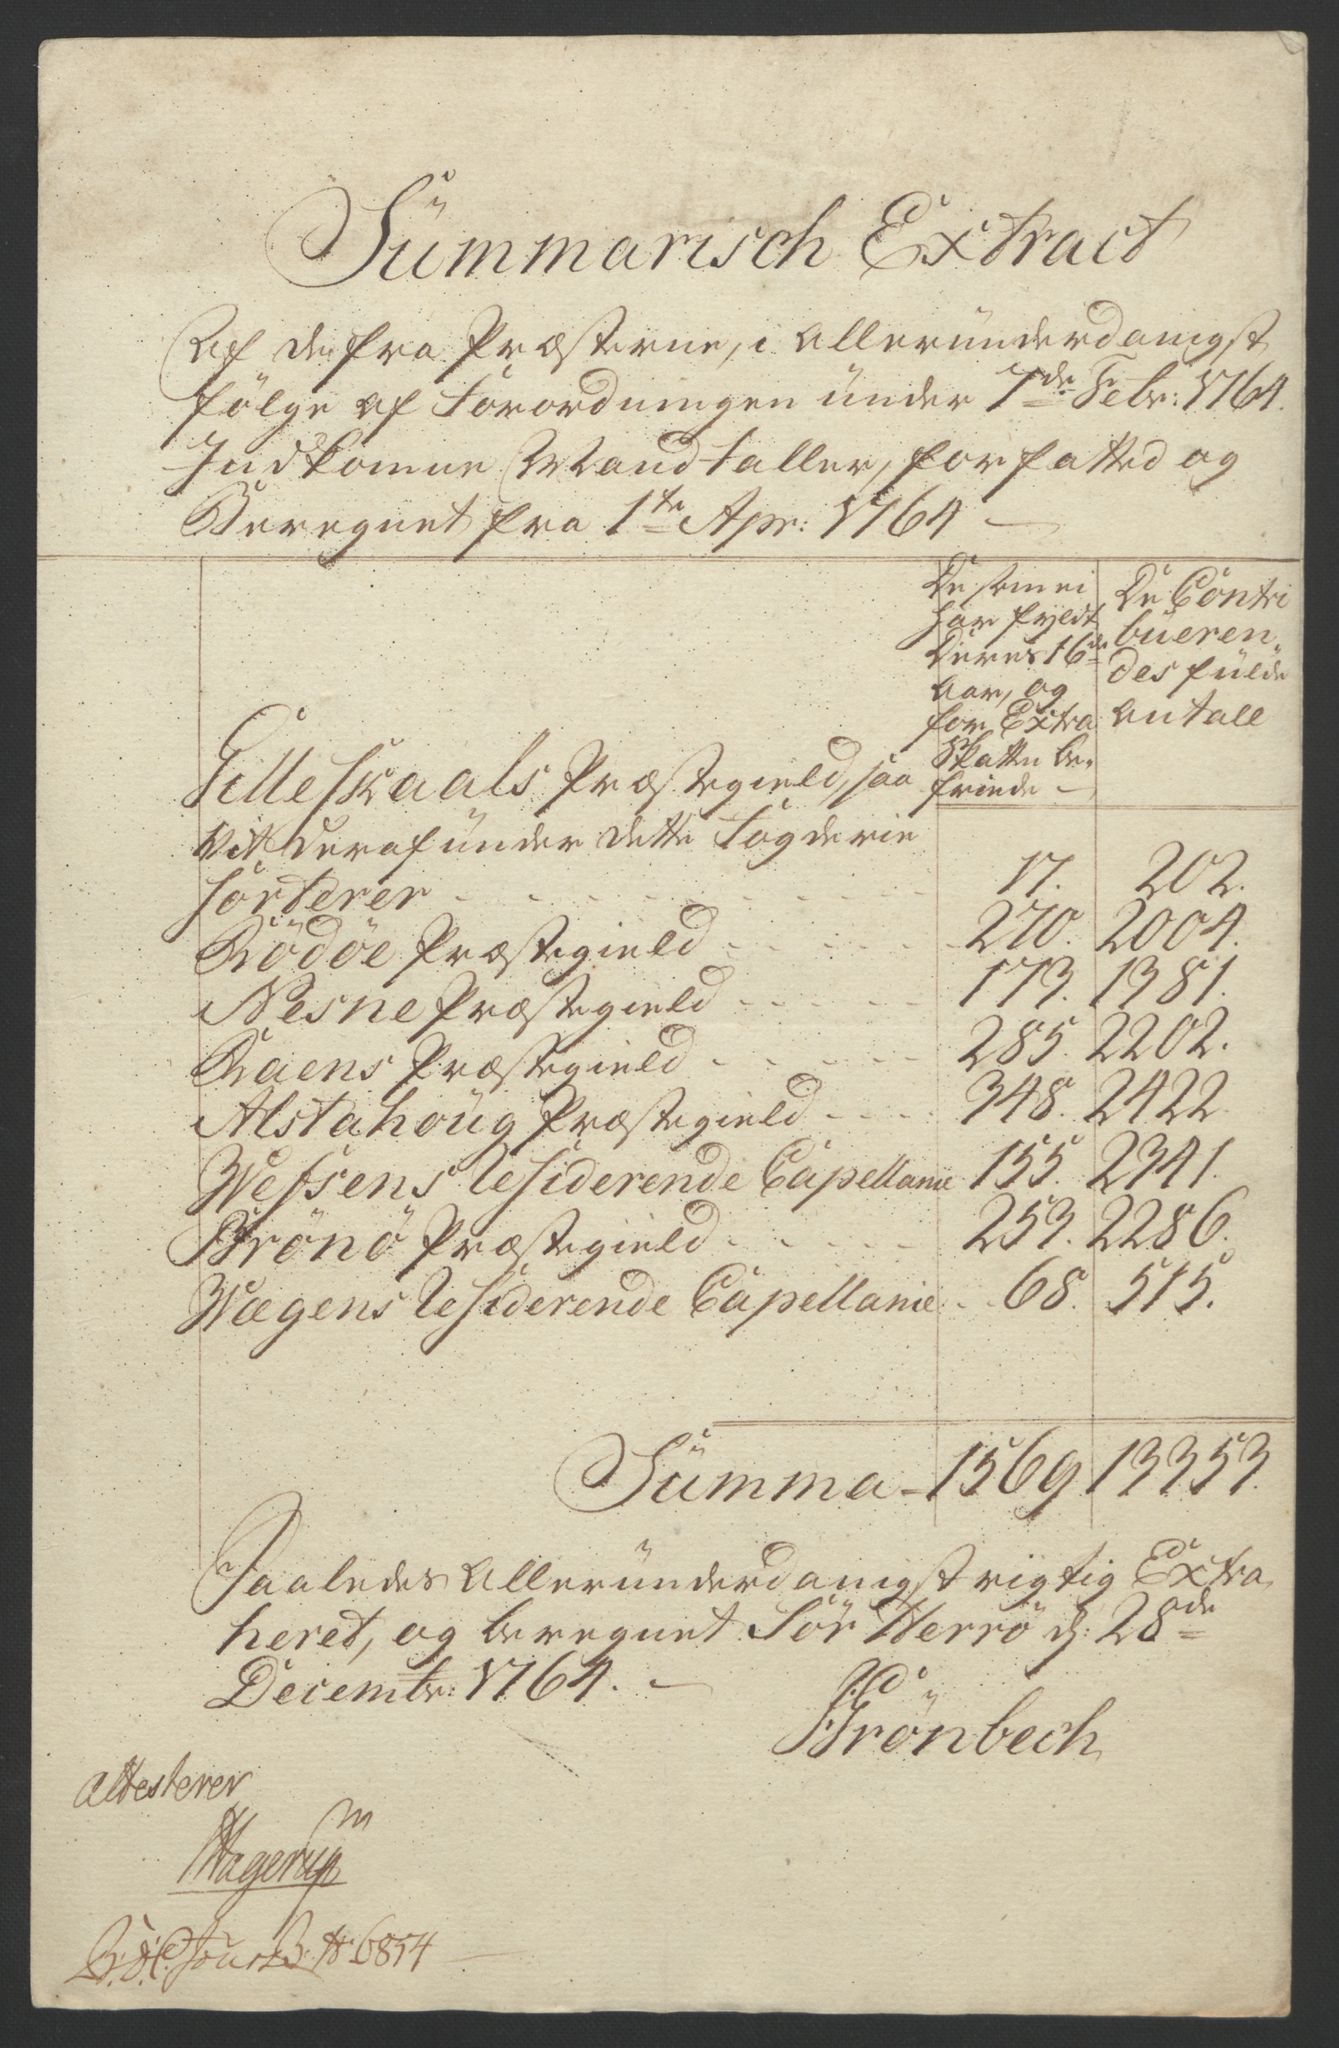 Summarisch Extract
Af de fra Præsterne, i allerunderdanigst
følge af Forordningen under 7de Febr: 1764.
Indkomne Mandtaller, forfatted og
Beregnet fra 1te Apr: 1764
De som ei
har fyldt
deres 16de
aar, og
for Extra
Skatten be-
friede
De Contri
bueren-
des fulde
antall
Gilleskaals Præstegield, saa
vit deraf under dette Fogderie
sorterer 17. 202.
Rödöe Præstegield 270. 2004.
Nesne Præstegield 173. 1381.
Raens Præstegield 285. 2202.
Alstahoug Præstegield 348. 2422
Wefsens Residerende Capellanie 155. 2341.
Brönö Præstegield 253. 2286.
Wægens Residerende Capellanie 68. 515.
Summa 1569 13353.
Saaledes allerunderdanigst rigtig Extra
heret, og beregnet Sör Herrö d: 28de
Decembr: 1764.
Brönbech
attesterer
Hagerup
No 6854